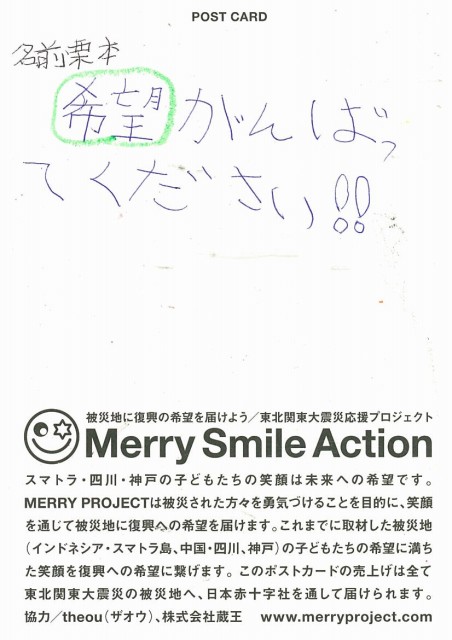 POST CARD
名前栗本
希望がんばっ
てください!!
被災地に復興の希望を届けよう／東北関東大震災応援プロジェクト
Merry Smile Action
スマトラ・四川・神戸の子どもたちの笑顔は未来への希望です。
MERRY PROJECTは被災された方々を勇気づけることを目的に、笑顔
を通じて被災地に復興への希望を届けます。これまでに取材した被災地
（インドネシア・スマトラ島、中国・四川、神戸）の子どもたちの希望に満ち
た笑顔を復興への希望に繋げます。このポストカードの売上げは全て
東北関東大震災の被災地へ、日本赤十字社を通して届けられます。
協力／theou（ザオウ）、株式会社蔵王 www.merryproject.com